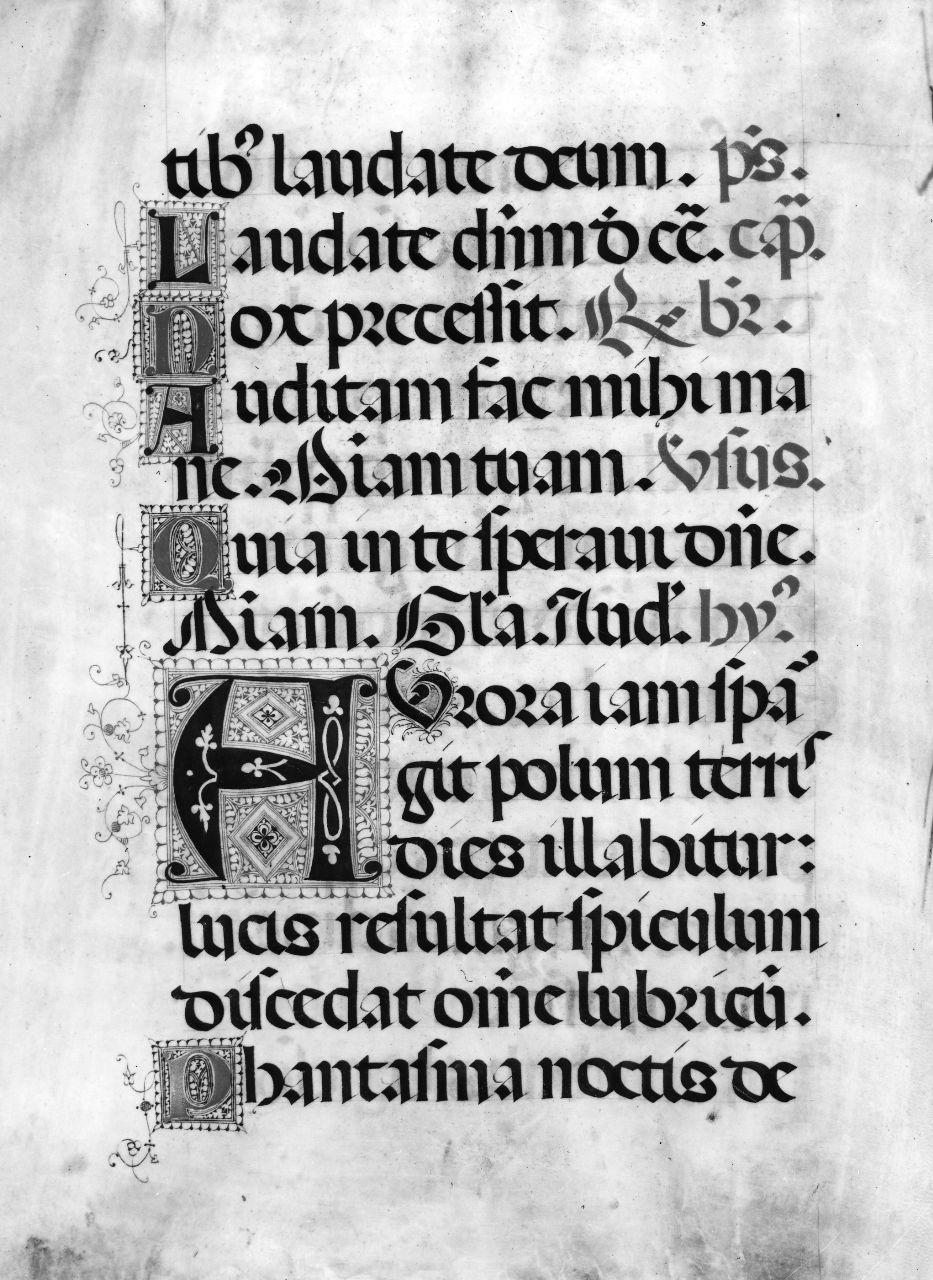 tibꝰ laudate deum. ps.
Laudate dñm ð cẽ. cap̃.
Nox precessit. ℞ br̃.
Auditam fac mihi ma
ne. Miam tuam. Vsus.
Quia in te speraui dñe.
Miam. Gl'a. Aud. hyꝰ
AVrora iam spã
git polum terris
dies illabitur:
lucis resultat spiculum
discedat om̃e lubricũ.
Phantasma noctis de